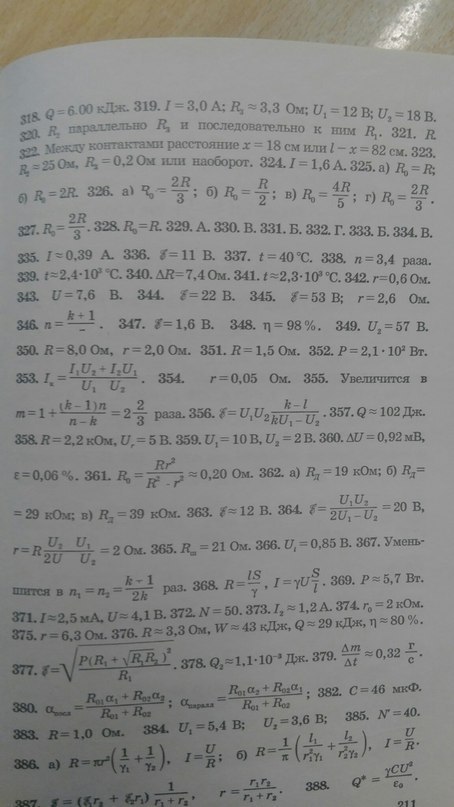 318. Q = 6.00 кДж. 319. I = 3,0 А; R₃ ≈ 3,3 Ом; U₁ = 12 В; U₂ = 18 В.
320. R₂ параллельно R₃ и последовательно к ним R₁. 321. R.
322. Между контактами расстояние x = 18 см или l − x = 82 см. 323.
R₁ ≈ 25 Ом, R₂ = 0,2 Ом или наоборот. 324. I = 1,6 А. 325. а) R₀ = R;
б) R₀ = 2R. 326. а) R₀ = 2R/3; б) R₀ = R/2; в) R₀ = 4R/5; г) R₀ = 2R/3.
327. R₀ = 2R/3. 328. R₀ = R. 329. А. 330. В. 331. Б. 332. Г. 333. Б. 334. В.
335. I ≈ 0,39 А. 336. ℰ = 11 В. 337. t = 40 °С. 338. n = 3,4 раза.
339. t ≈ 2,4·10³ °С. 340. ΔR = 7,4 Ом. 341. t ≈ 2,3·10³ °С. 342. r = 0,6 Ом.
343. U = 7,6 В. 344. ℰ = 22 В. 345. ℰ = 53 В; r = 2,6 Ом.
346. n = (k + 1)/. 347. ℰ = 1,6 В. 348. η = 98 %. 349. U₂ = 57 В.
350. R = 8,0 Ом, r = 2,0 Ом. 351. R = 1,5 Ом. 352. P = 2,1 · 10² Вт.
353. Iₖ = (I₁U₂ + I₂U₁)/(U₁ U₂). 354. r = 0,05 Ом. 355. Увеличится в
m = 1 + (k − 1)n/(n − k) = 2 2/3 раза. 356. ℰ = U₁U₂ (k − l)/(kU₁ − U₂). 357. Q ≈ 102 Дж.
358. R = 2,2 кОм, Uᵣ = 5 В. 359. U₁ = 10 В, U₂ = 2 В. 360. ΔU = 0,92 мВ,
ε = 0,06 %. 361. R₀ = Rr²/(R² − r²) ≈ 0,20 Ом. 362. а) R_Д = 19 кОм; б) R_Д =
= 29 кОм; в) R_Д = 39 кОм. 363. ℰ ≈ 12 В. 364. ℰ = U₁U₂/(2U₁ − U₂) = 20 В,
r = R (U₂ U₁)/(2U U₂) = 2 Ом. 365. R_ш = 21 Ом. 366. U = 0,85 В. 367. Умень-
шится в n₁ = n₂ = (k − 1)/2k раз. 368. R = lS/γ, I = γU S/l. 369. P ≈ 5,7 Вт.
371. I ≈ 2,5 мА, U ≈ 4,1 В. 372. N = 50. 373. I₂ ≈ 1,2 А. 374. r₀ = 2 кОм.
375. r = 6,3 Ом. 376. R ≈ 3,3 Ом, W ≈ 43 кДж, Q ≈ 29 кДж, η ≈ 80 %.
377. ℰ = √(P(R₁ + √(R₁R₂))²/R₁). 378. Q₂ ≈ 1,1·10⁻³ Дж. 379. Δm/Δt ≈ 0,32 г/с.
380. α = (R₀₁α₁ + R₀₂α₂)/(R₀₁ + R₀₂); α = (R₀₁α₂ + R₀₂α₁)/(R₀₁ + R₀₂); 382. C = 46 мкФ.
383. R = 1,0 Ом. 384. U₁ = 5,4 В; U₂ = 3,6 В; 385. N′ = 40.
386. а) R = πr²(1/γ₁ + 1/γ₂), I = U/R; б) R = 1/π (l₁/(r₁²γ₁) + l₂/(r₂²γ₂)), I = U/R.
387. ℰ = (ℰ₁r₂ + ℰ₂r₁) 1/(r₁ + r₂), r = r₁r₂/(r₁ + r₂). 388. Q* = γCU²/ε₀.
211